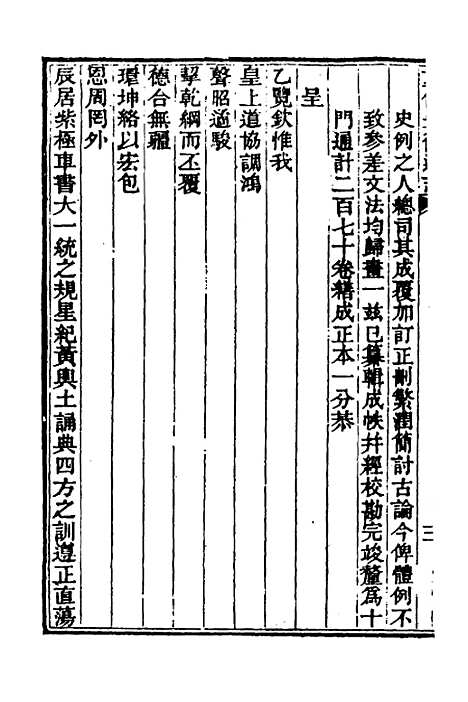 史例之人總司其成覆加訂正刪繁潤簡討古論今俾體例不
致參差文法均歸畫一兹已纂輯成帙并經校勘完竣釐爲十
門通計二百七十卷繕成正本一分恭
呈
乙覽欽惟我
皇上道協調鴻
聲昭遹駿
挈乾綱而丕覆
德台無疆
環坤絡以宏包
恩周罔外
辰居紫極車書大一統之規星紀黃輿土誦典四方之訓遵正直蕩
三